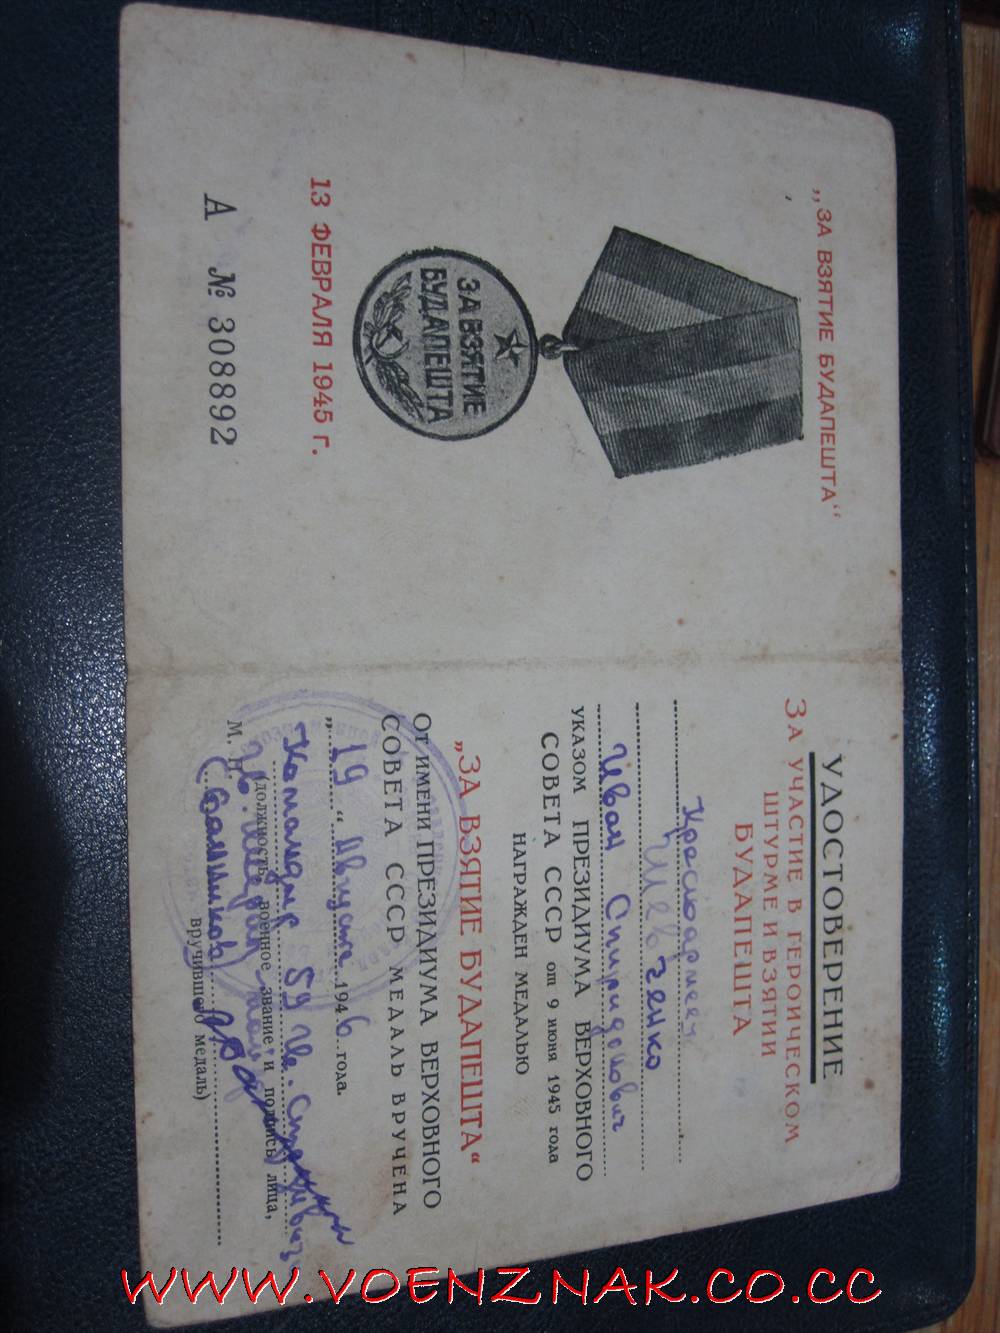 „ЗА ВЗЯТИЕ БУДАПЕШТА“
ЗА ВЗЯТИЕ
БУДАПЕШТА
13 ФЕВРАЛЯ 1945 г.
А № 308892
УДОСТОВЕРЕНИЕ
ЗА УЧАСТИЕ В ГЕРОИЧЕСКОМ
ШТУРМЕ И ВЗЯТИИ
БУДАПЕШТА
Красноармеец
Шевченко
Иван Спиридонович
УКАЗОМ ПРЕЗИДИУМА ВЕРХОВНОГО
СОВЕТА СССР от 9 июня 1945 года
НАГРАЖДЕН МЕДАЛЬЮ
„ЗА ВЗЯТИЕ БУДАПЕШТА“
От ИМЕНИ ПРЕЗИДИУМА ВЕРХОВНОГО
СОВЕТА СССР МЕДАЛЬ ВРУЧЕНА
„19“ Августа 1946 года.
Командир 59 Гв.
(должность, военное звание и подпись лица,
М. П.
вручившего медаль)
WWW.VOENZNAK.CO.CC